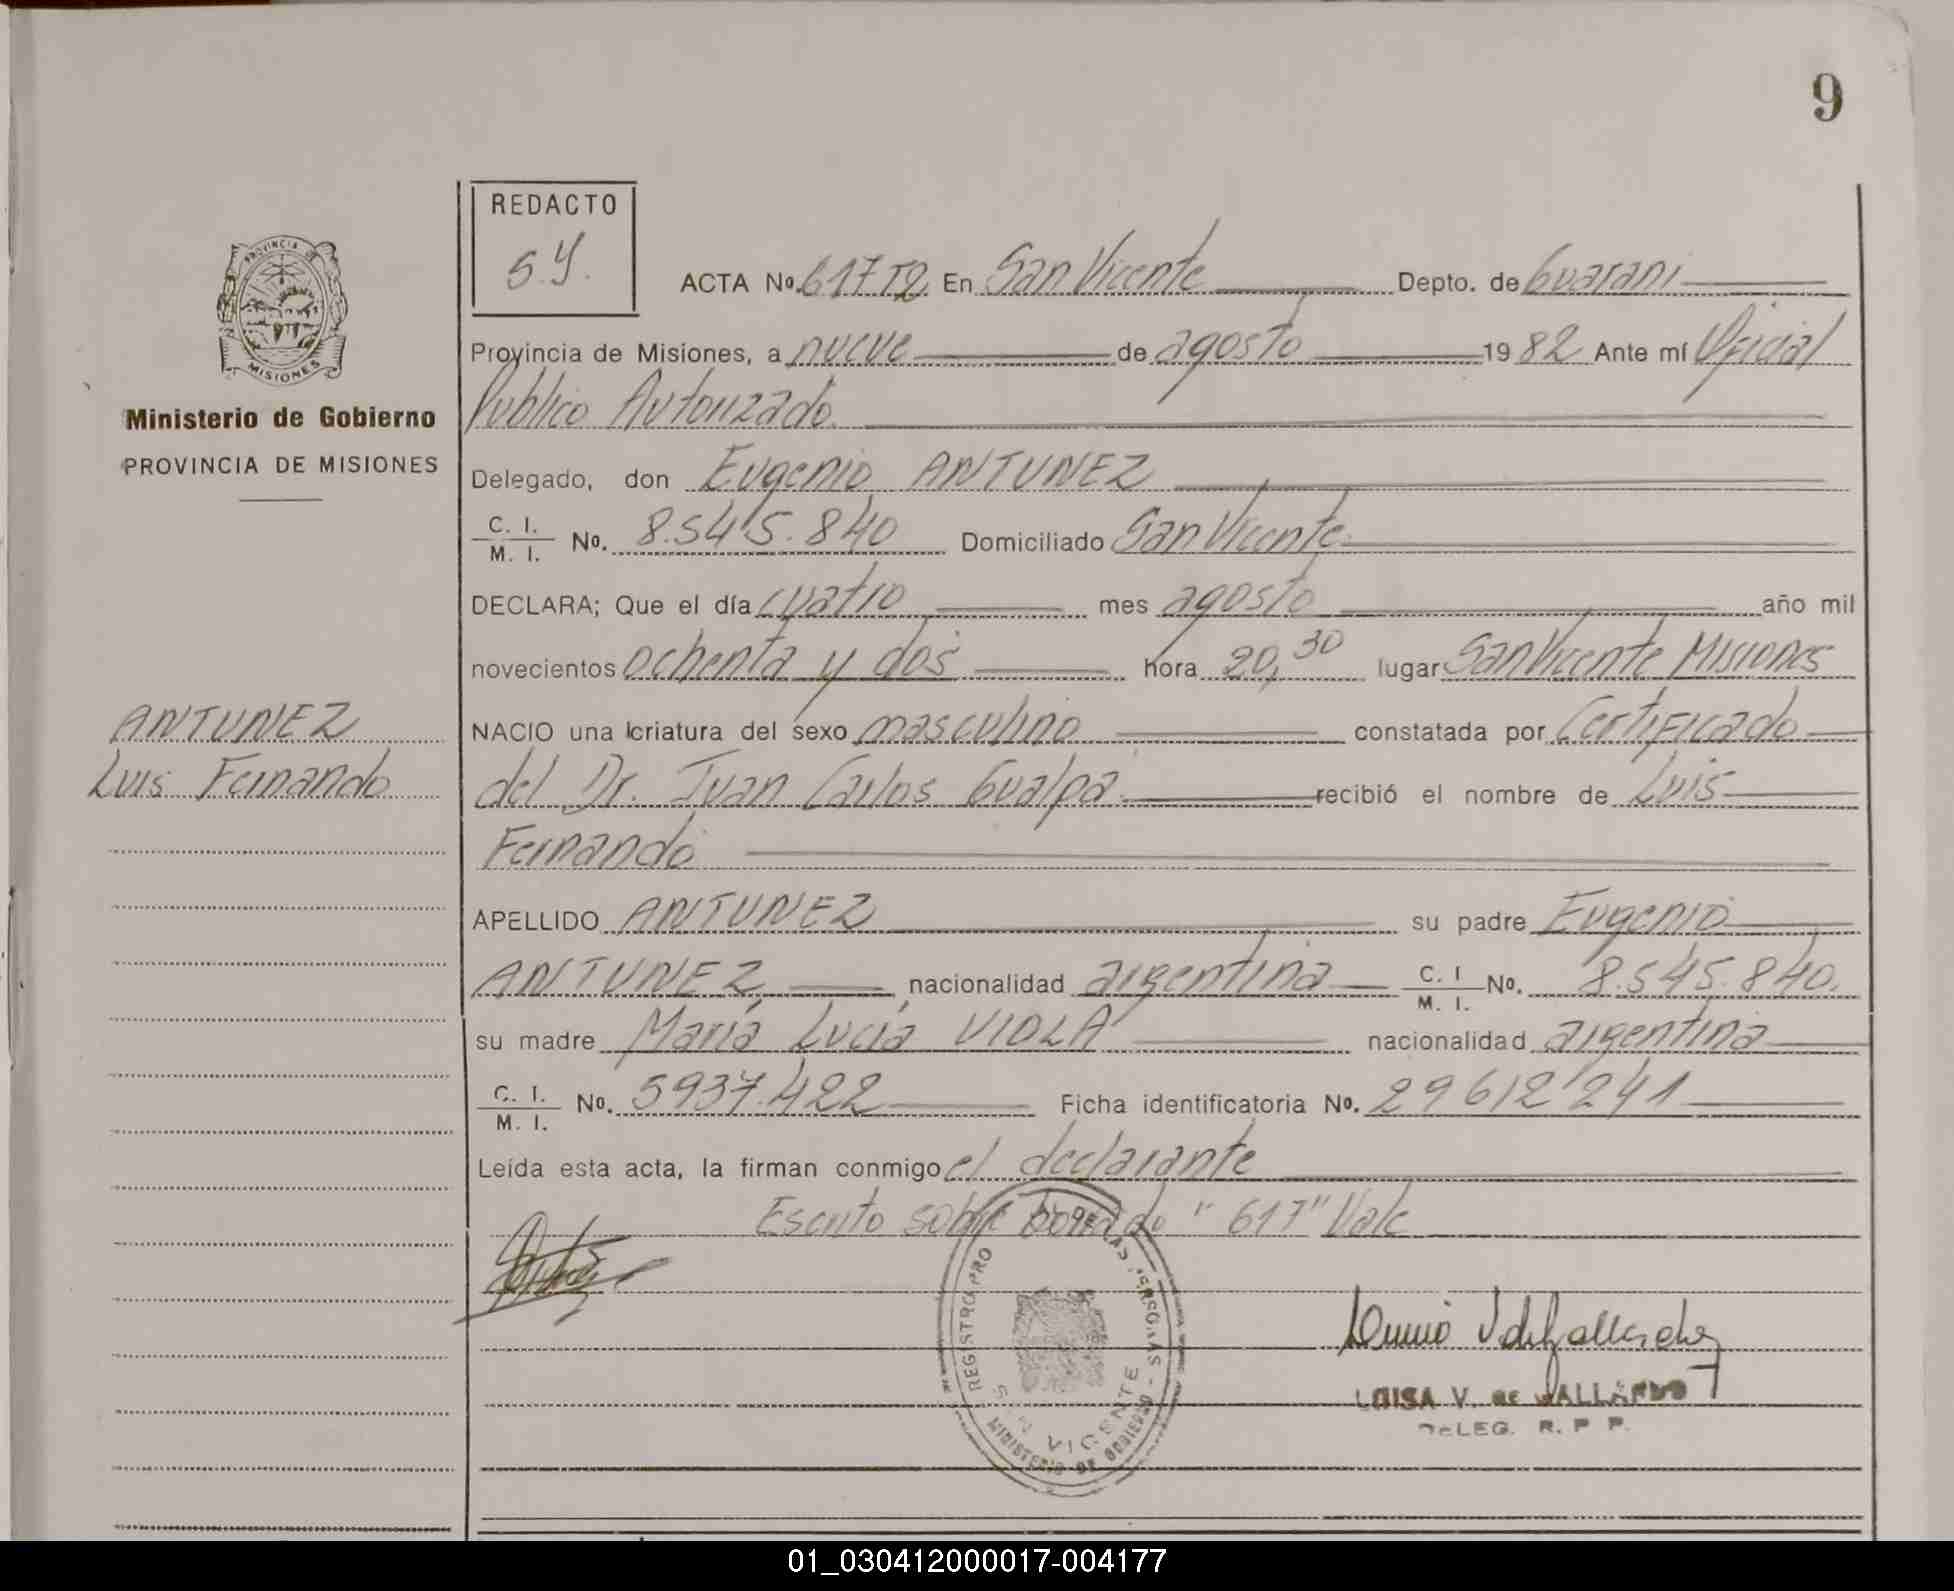 9
REDACTO
S.Y.
PROVINCIA DE
MISIONES
Ministerio de Gobierno
PROVINCIA DE MISIONES
ACTA No. 617 T2 En San Vicente Depto. de Guarani
Provincia de Misiones, a nueve de agosto 1982 Ante mí Oficial
Publico Autorizado.
Delegado, don Eugenio ANTUNEZ
C. I. / M. I. No. 8.545.840 Domiciliado San Vicente
DECLARA; Que el día cuatro mes agosto año mil
novecientos ochenta y dos hora 20,30 lugar San Vicente Misiones
NACIO una criatura del sexo masculino constatada por Certificado
del Dr. Juan Carlos Gualpa recibió el nombre de Luis
Fernando
APELLIDO ANTUNEZ su padre Eugenio
ANTUNEZ, nacionalidad argentina C. I / M. I. No. 8.545.840.
su madre María Lucía VIOLA nacionalidad argentina
C. I. / M. I. No. 5937.422 Ficha identificatoria No. 29612241
Leída esta acta, la firman conmigo el declarante
Escrito sobre borrado "617" Vale
ANTUNEZ
Luis Fernando
REGISTRO PRO DE LAS PERSONAS
SAN VICENTE
MINISTERIO DE GOBIERNO
LUISA V. DE GALLARDO
DELEG. R. P. P.
01_030412000017-004177